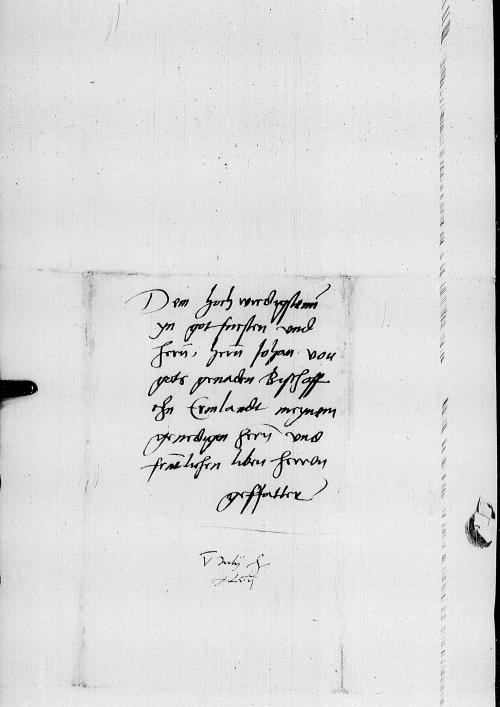 Dem hoch wirdigstenn
yn got fürsten und
hern̄, hern̄ Johan von
gots genaden Bischoff
ihn Ermlandt meynem
genedigen hern̄ und
liben herren
gesffatter